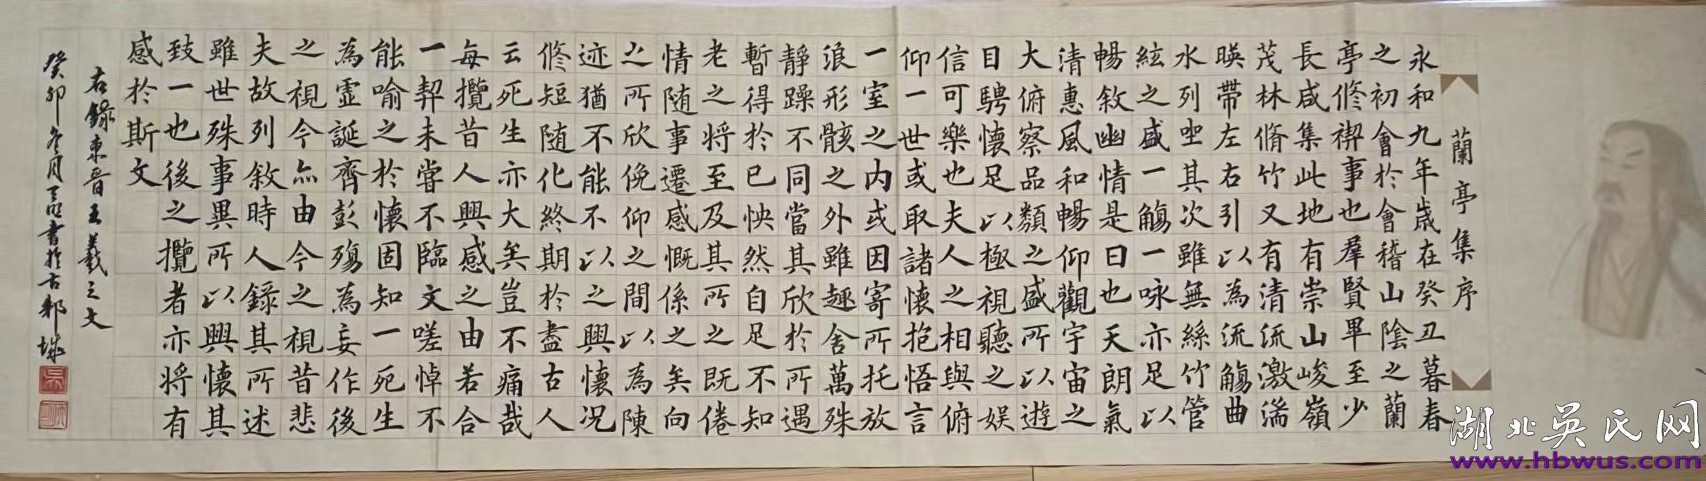 蘭亭集序
永和九年歲在癸丑暮春
之初會於會稽山陰之蘭
亭修禊事也羣賢畢至少
長咸集此地有崇山峻嶺
茂林脩竹又有清流激湍
暎帶左右引以為流觴曲
水列坐其次雖無絲竹管
絃之盛一觴一咏亦足以
暢敘幽情是日也天朗氣
清惠風和暢仰觀宇宙之
大俯察品類之盛所以遊
目騁懷足以極視聽之娛
信可樂也夫人之相與俯
仰一世或取諸懷抱悟言
一室之內或因寄所托放
浪形骸之外雖趣舍萬殊
靜躁不同當其欣於所遇
暫得於己怏然自足不知
老之將至及其所之既倦
情隨事遷感慨係之矣向
之所欣俛仰之間以為陳
迹猶不能不以之興懷况
修短隨化終期於盡古人
云死生亦大矣豈不痛哉
每攬昔人興感之由若合
一契未嘗不臨文嗟悼不
能喻之於懷固知一死生
為虛誕齊彭殤為妄作後
之視今亦由今之視昔悲
夫故列敘時人錄其所述
雖世殊事異所以興懷其
致一也後之攬者亦將有
感於斯文
右錄東晉王羲之文
癸卯冬月書於古郢城
湖北吳氏网
www.hbwus.com